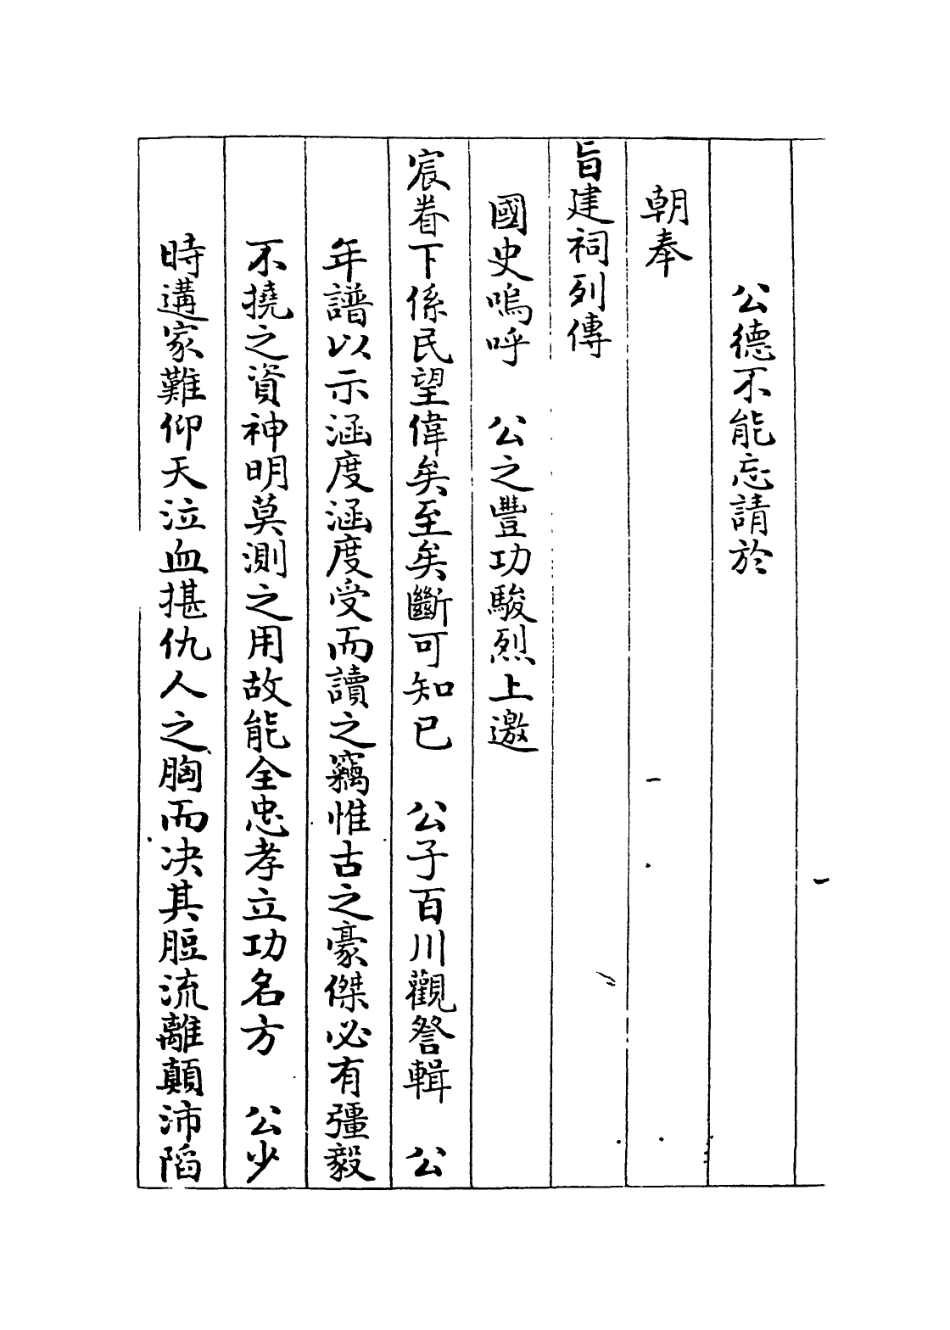 公德不能忘請於
朝奉
旨建祠列傳
國史嗚呼　公之豐功駿烈上邀
宸眷下係民望偉矣至矣斷可知已　公子百川觀詧輯　公
年譜以示涵度涵度受而讀之竊惟古之豪傑必有彊毅
不撓之資神明莫測之用故能全忠孝立功名方　公少
時遘家難仰天泣血揕仇人之胸而决其脰流離顛沛蹈